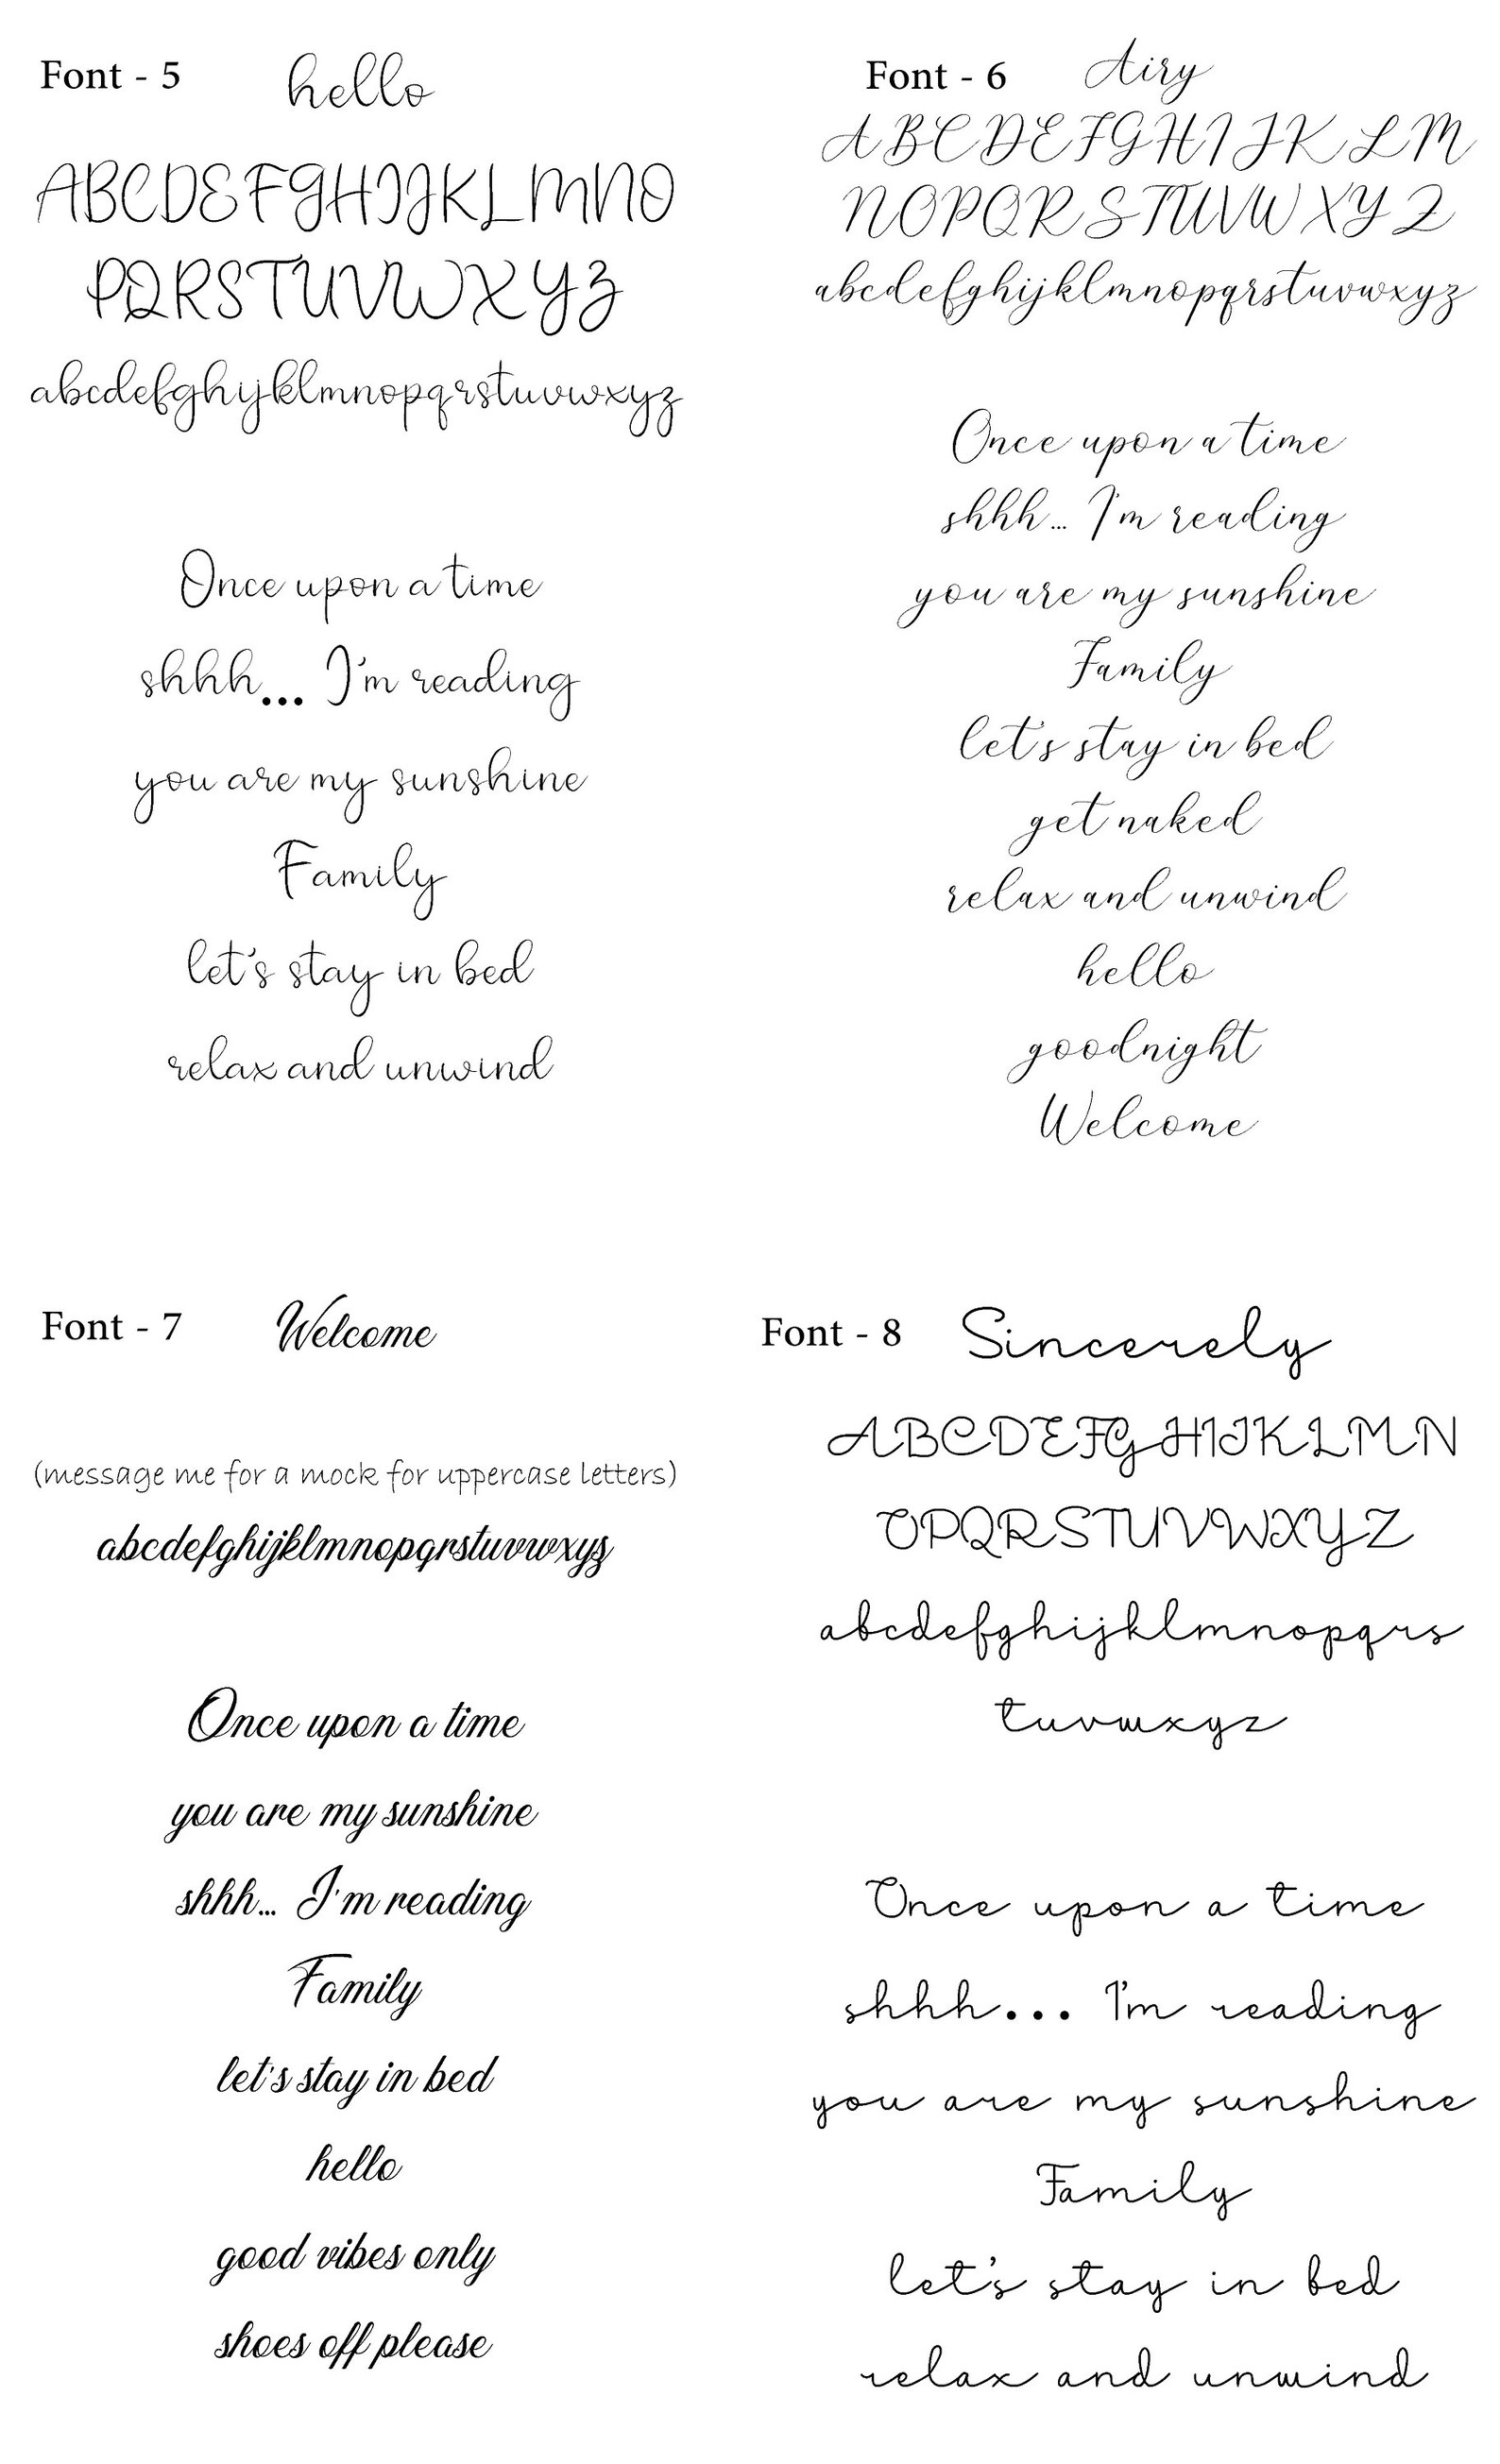 Font - 5 hello
ABCDEFGHIJKLMNO
PQRSTUVWXYZ
abcdefghijklmnopqrstuvwxyz
Once upon a time
shhh... I'm reading
you are my sunshine
Family
let's stay in bed
relax and unwind
Font - 6 Airy
ABCDEFGHIJKLM
NOPQRSTUVWXYZ
abcdefghijklmnopqrstuvwxyz
Once upon a time
shhh... I'm reading
you are my sunshine
Family
let's stay in bed
get naked
relax and unwind
hello
goodnight
Welcome
Font - 7 Welcome
(message me for a mock for uppercase letters)
abcdefghijklmnopqrstuvwxyz
Once upon a time
you are my sunshine
shhh... I'm reading
Family
let's stay in bed
hello
good vibes only
shoes off please
Font - 8 Sincerely
ABCDEFGHIJKLMN
OPQRSTUVWXYZ
abcdefghijklmnopqrs
tuvwxyz
Once upon a time
shhh... I'm reading
you are my sunshine
Family
let's stay in bed
relax and unwind